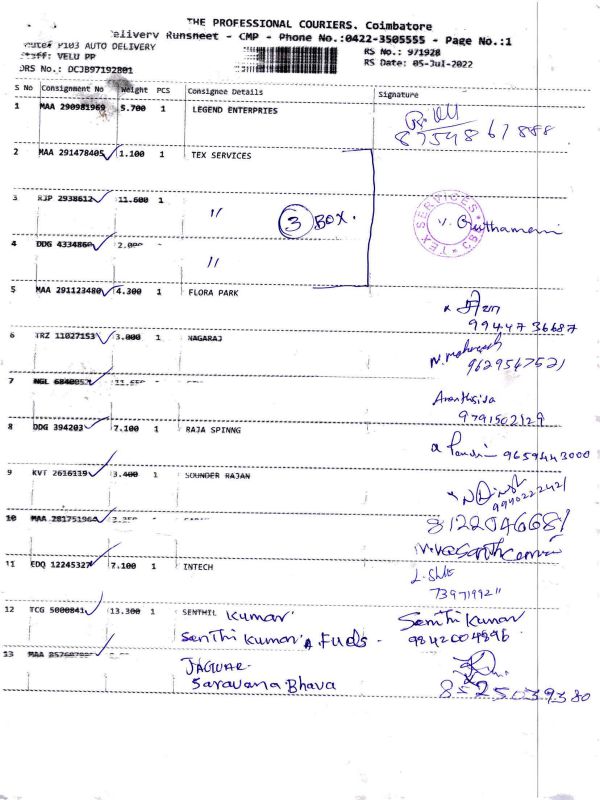 THE PROFESSIONAL COURIERS. Coimbatore
elivery Runsheet - CMP - Phone No.:0422-3505555 - Page No.:1
P103 AUTO DELIVERY
RS No.: 971928
VELU PP
RS Date: 05-Jul-2022
DRS No.: DCJB97192801
S No Consignment No Weight PCS Consignee Details Signature
1 MAA 290981969 5.700 1 LEGEND ENTERPRIES
87548 67888
2 MAA 291478405 1.100 1 TEX SERVICES
3 RJP 2938612 11.600 1 〃 3 BOX.
TEX SERVICES * CBE *
4 DDG 4334860 2.000 〃
5 MAA 291123480 4.300 1 FLORA PARK
99447 36687
6 TRZ 11027153 3.000 1 NAGARAJ
9629547521
7 NGL
9791502129
8 DDG 394203 7.100 1 RAJA SPINNG
9659443000
9 KVT 2616119 3.400 1 SOUNDER RAJAN
9940222421
10 MAA 281751964
8122046681
11 EDQ 12245327 7.100 1 INTECH
12 TCG 5000841 13.300 1 SENTHIL Kumar
Senthi Kumar
Senthi Kumar A Fuds.
9842004896
13 MAA
JAGUAR
Saravana Bhava
8525039380